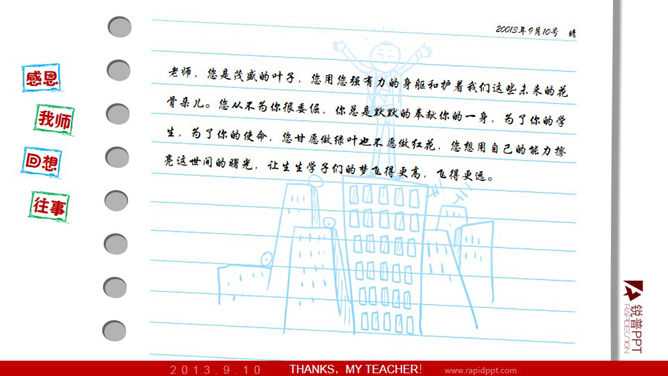 20013年9月10号 晴
老师，您是茂盛的叶子，您用您强有力的身躯和护着我们这些未来的花
骨朵儿。您从不为你很委屈，你总是默默的奉献你的一身，为了你的学
生，为了你的使命，您甘愿做绿叶也不愿做红花，您想用自己的能力擦
亮这世间的曙光，让生生学子们的梦飞得更高，飞得更远。
感恩
我师
回想
往事
锐普PPT
RAPIDESIGN
2013.9.10
THANKS，MY TEACHER!
www.rapidppt.com